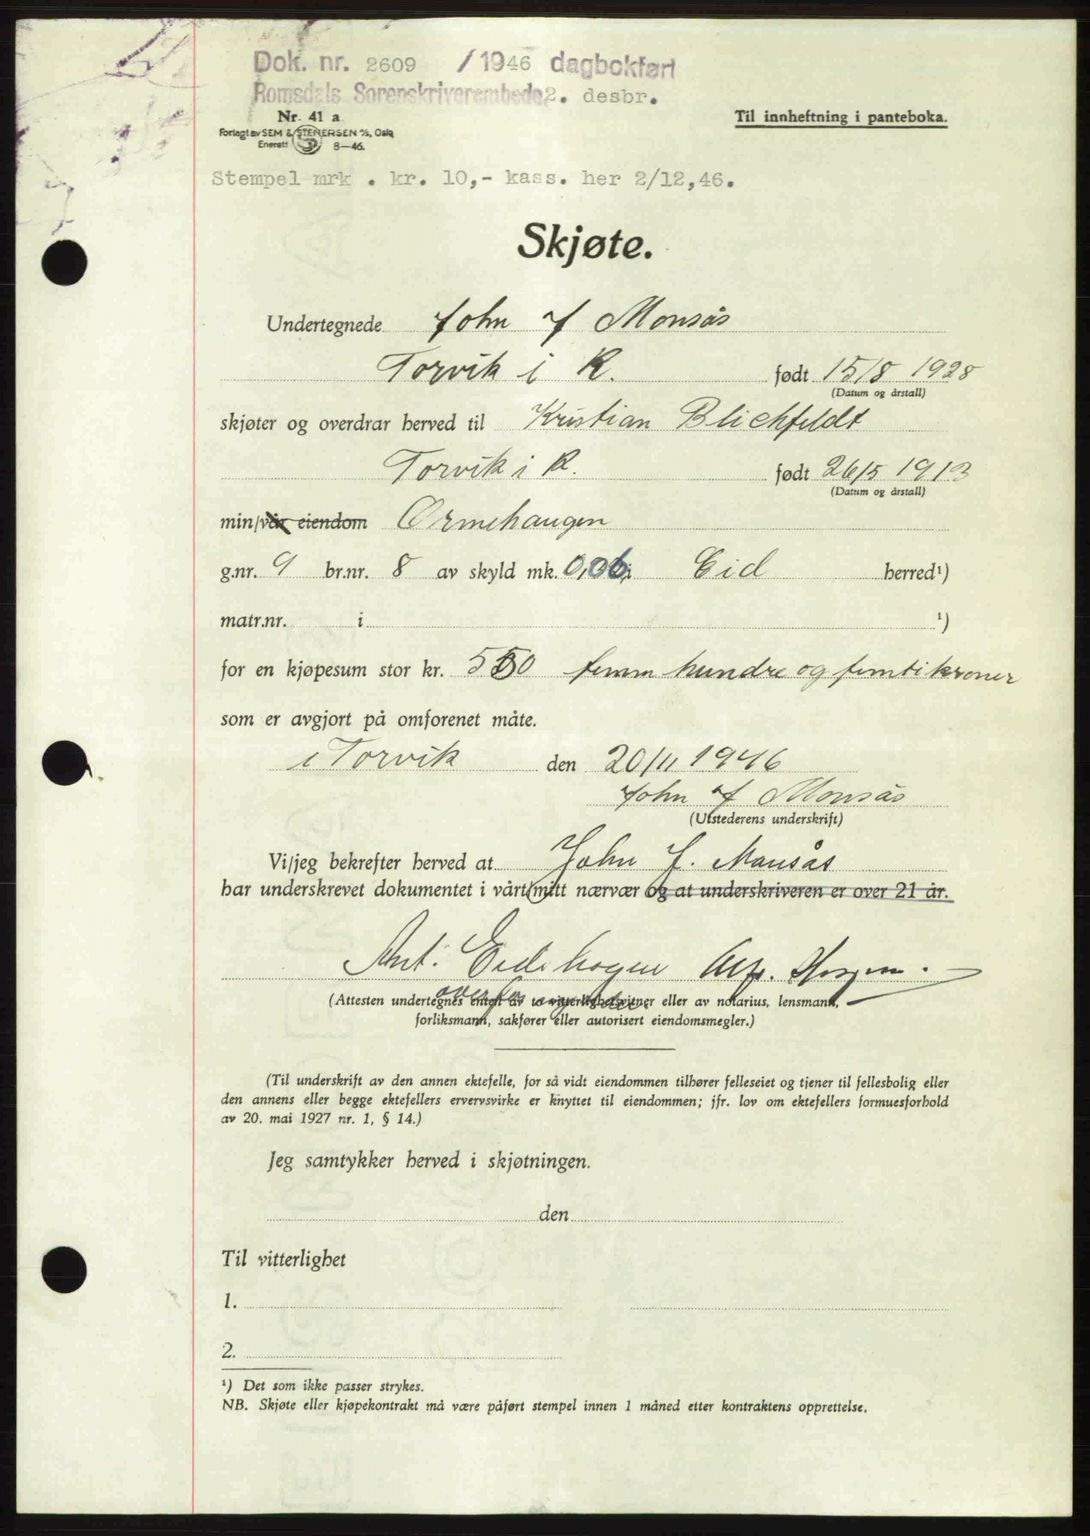 Dok. nr. 2609 /1946 dagbokført
Romsdals Sorenskriverembede 2. desbr.
Nr. 41 a
Til innheftning i panteboka.
Forlagt av SEM & STENERSEN A/S, Oslo
Enerett 8-46.
Stempel mrk . kr. 10,- kass. her 2/12,46.
Skjøte.
Undertegnede John J Monsås
Torvik i R. født 15/8 1928
(Datum og årstall)
skjøter og overdrar herved til Kristian Blichfeldt
Torvik i R. født 26/5 1913
(Datum og årstall)
min/vår eiendom Ormehaugen
g.nr. 9 br.nr. 8 av skyld mk. 0,06 i Eid herred¹)
matr.nr. i ¹)
for en kjøpesum stor kr. 550 femm hundre og femti kroner
som er avgjort på omforenet måte.
i Torvik den 20/11 1946
John J Monsås
(Utstederens underskrift)
Vi/jeg bekrefter herved at John J. Mansås
har underskrevet dokumentet i vårt/mitt nærvær og at underskriveren er over 21 år.
Ant. Eidehagen
(Attesten undertegnes enten av to vitterlighetsvitner eller av notarius, lensmann,
forliksmann, sakfører eller autorisert eiendomsmegler.)
(Til underskrift av den annen ektefelle, for så vidt eiendommen tilhører felleseiet og tjener til fellesbolig eller
den annens eller begge ektefellers ervervsvirke er knyttet til eiendommen; jfr. lov om ektefellers formuesforhold
av 20. mai 1927 nr. 1, § 14.)
Jeg samtykker herved i skjøtningen.
den
Til vitterlighet
1.
2.
¹) Det som ikke passer strykes.
NB. Skjøte eller kjøpekontrakt må være påført stempel innen 1 måned etter kontraktens opprettelse.